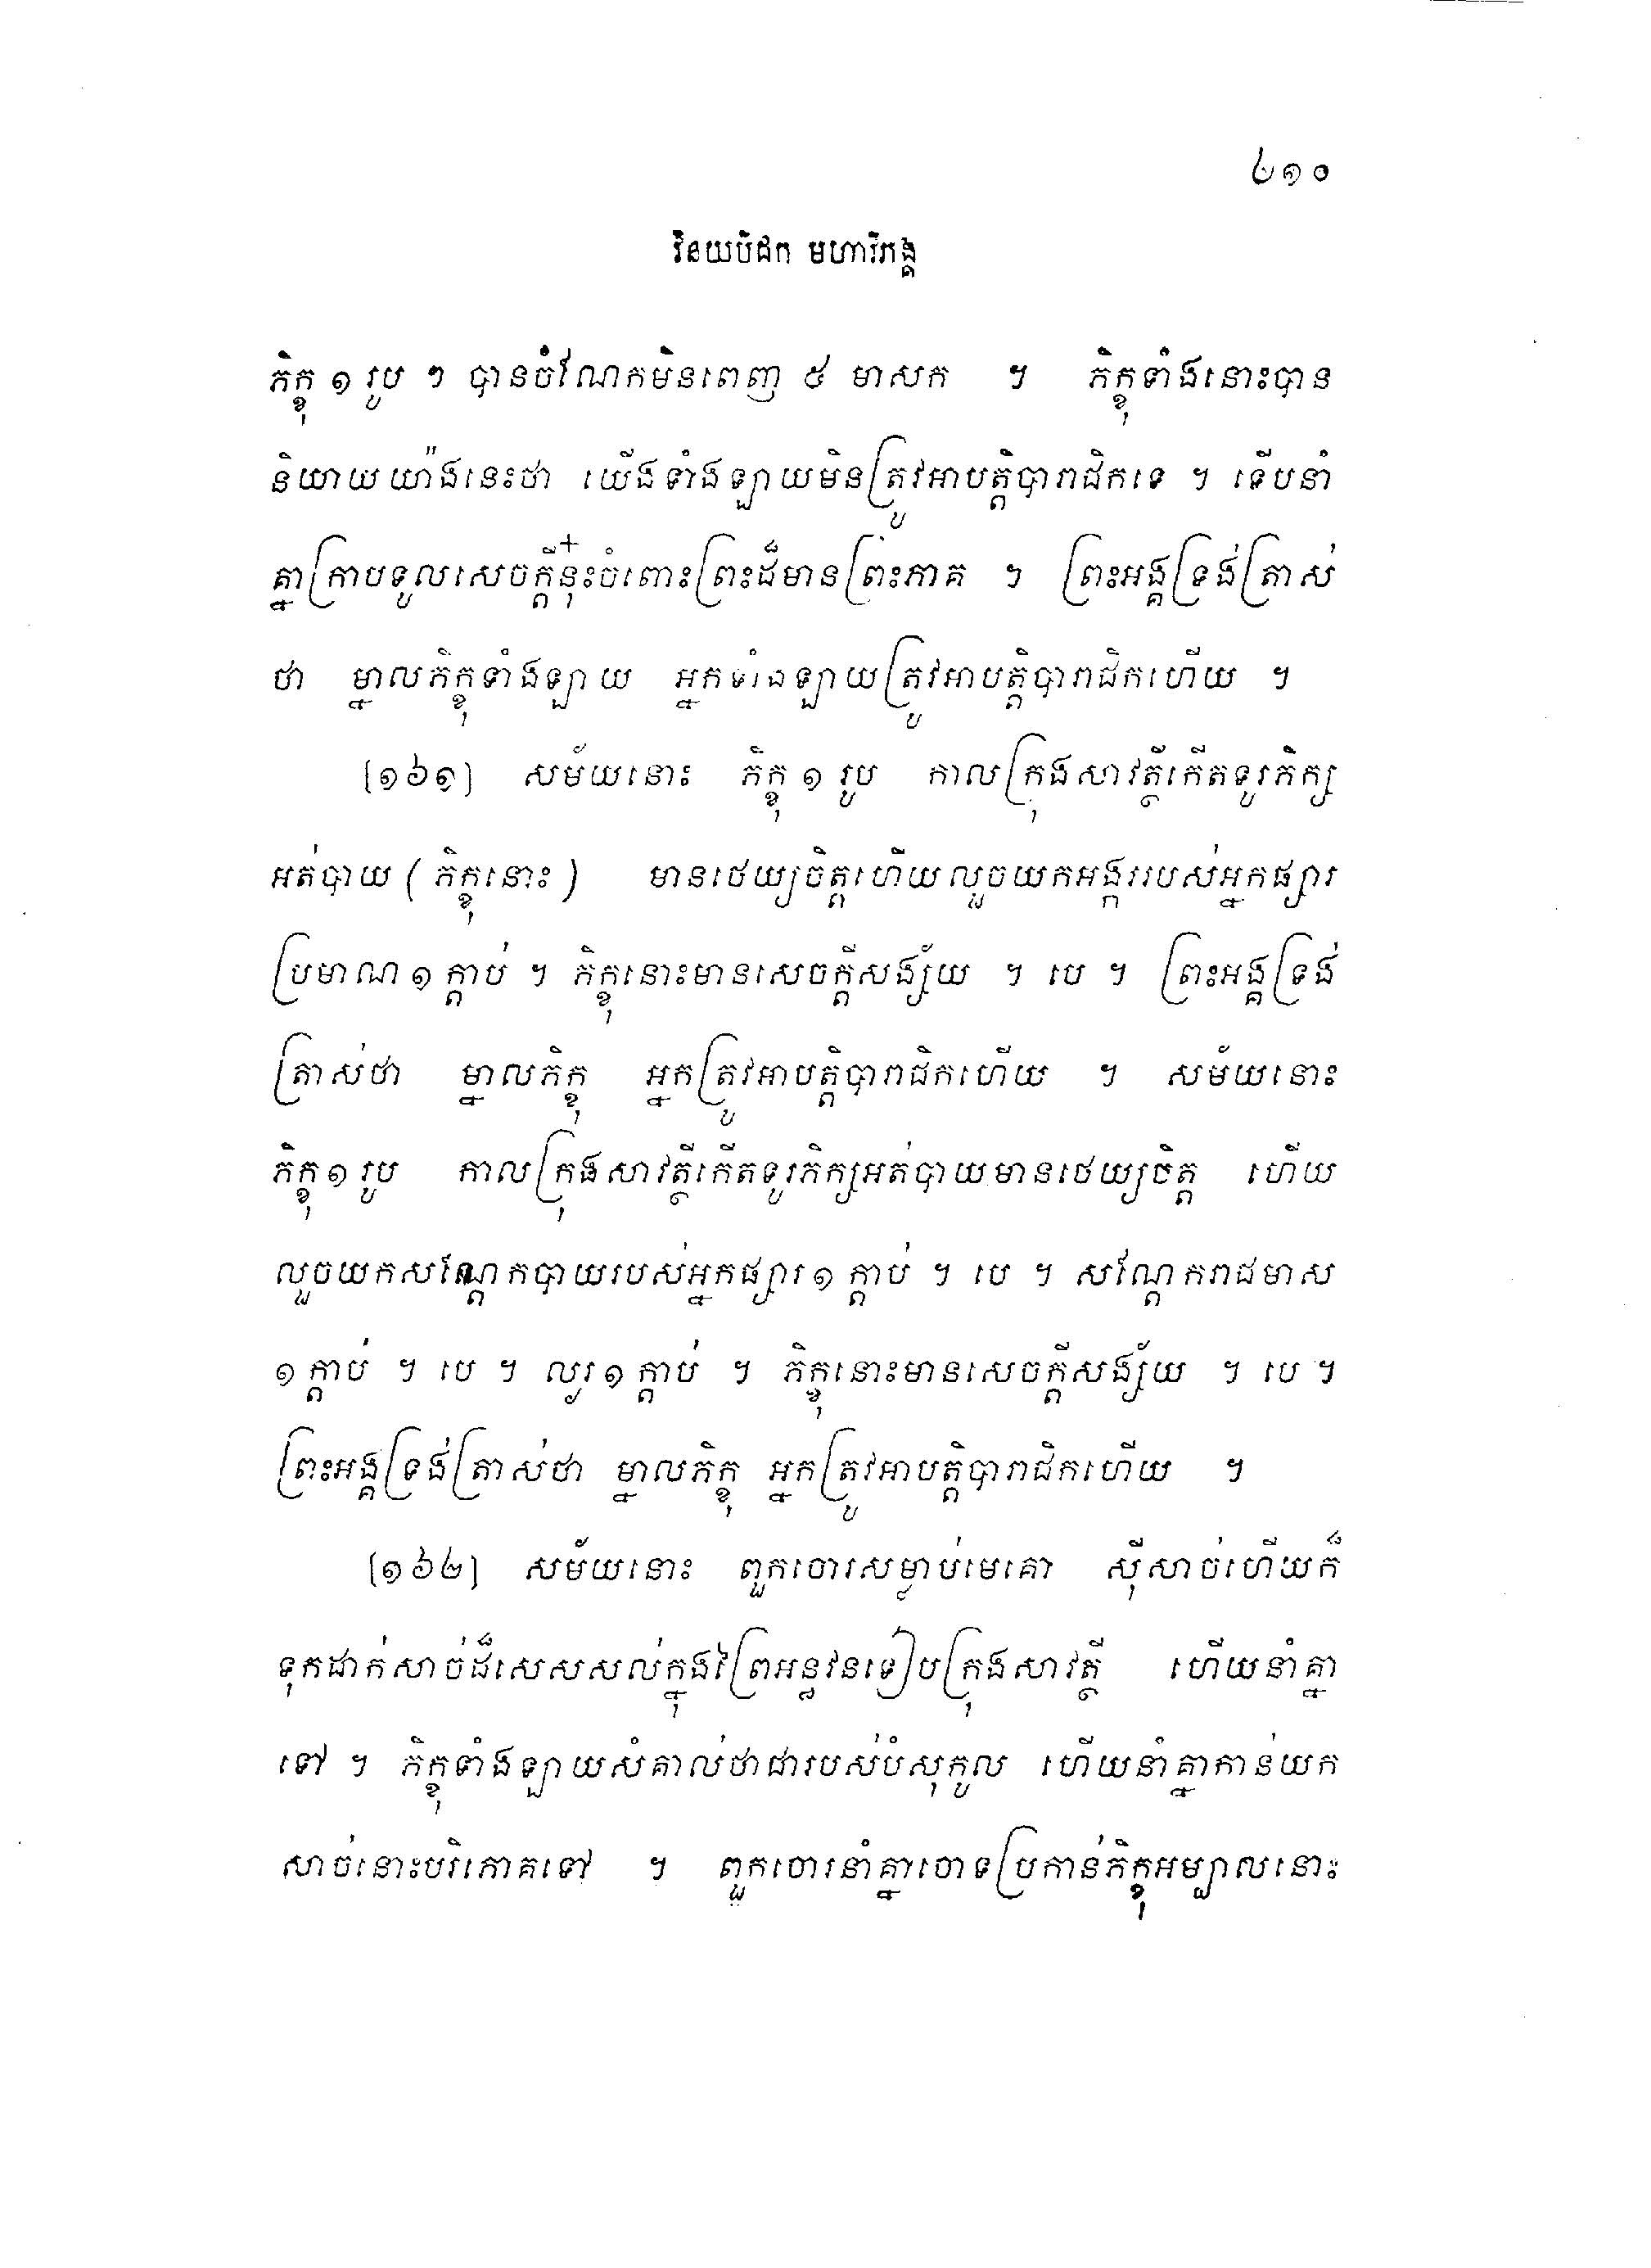 ៤១០
វិនយបិដក មហាវិភង្គ
ភិក្ខុ ១ រូប ៗ បានចំណែកមិនពេញ ៥ មាសក ។ ភិក្ខុទាំងនោះបាន
និយាយយ៉ាងនេះថា យើងទាំងឡាយមិនត្រូវអាបត្តិបារាជិកទេ ។ ទើបនាំ
គ្នាក្រាបទូលសេចក្តីនុ៎ះចំពោះព្រះដ៏មានព្រះភាគ ។ ព្រះអង្គទ្រង់ត្រាស់
ថា ម្នាលភិក្ខុទាំងឡាយ អ្នកទាំងឡាយត្រូវអាបត្តិបារាជិកហើយ ។
[១៦១] សម័យនោះ ភិក្ខុ ១ រូប កាលក្រុងសាវត្ថីកើតទូរភិក្ស
អត់បាយ ( ភិក្ខុនោះ ) មានថេយ្យចិត្តហើយលួចយកអង្ករបស់អ្នកផ្សារ
ប្រមាណ ១ ក្តាប់ ។ ភិក្ខុនោះមានសេចក្តីសង្ស័យ ។ បេ ។ ព្រះអង្គទ្រង់
ត្រាស់ថា ម្នាលភិក្ខុ អ្នកត្រូវអាបត្តិបារាជិកហើយ ។ សម័យនោះ
ភិក្ខុ ១ រូប កាលក្រុងសាវត្ថីកើតទូរភិក្សអត់បាយមានថេយ្យចិត្ត ហើយ
លួចយកសណ្តែកបាយរបស់អ្នកផ្សារ ១ ក្តាប់ ។ បេ ។ សណ្តែករាជមាស
១ ក្តាប់ ។ បេ ។ ល្ងរ ១ ក្តាប់ ។ ភិក្ខុនោះមានសេចក្តីសង្ស័យ ។ បេ ។
ព្រះអង្គទ្រង់ត្រាស់ថា ម្នាលភិក្ខុ អ្នកត្រូវអាបត្តិបារាជិកហើយ ។
[១៦២] សម័យនោះ ពួកចោរសម្លាប់មេគោ ស៊ីសាច់ហើយក៏
ទុកដាក់សាច់ដ៏សេសសល់ក្នុងព្រៃអន្ធវនទៀបក្រុងសាវត្ថី ហើយនាំគ្នា
ទៅ ។ ភិក្ខុទាំងឡាយសំគាល់ថាជារបស់បំសុកូល ហើយនាំគ្នាកាន់យក
សាច់នោះបរិភោគទៅ ។ ពួកចោរនាំគ្នាចោទប្រកាន់ភិក្ខុអម្បាលនោះ